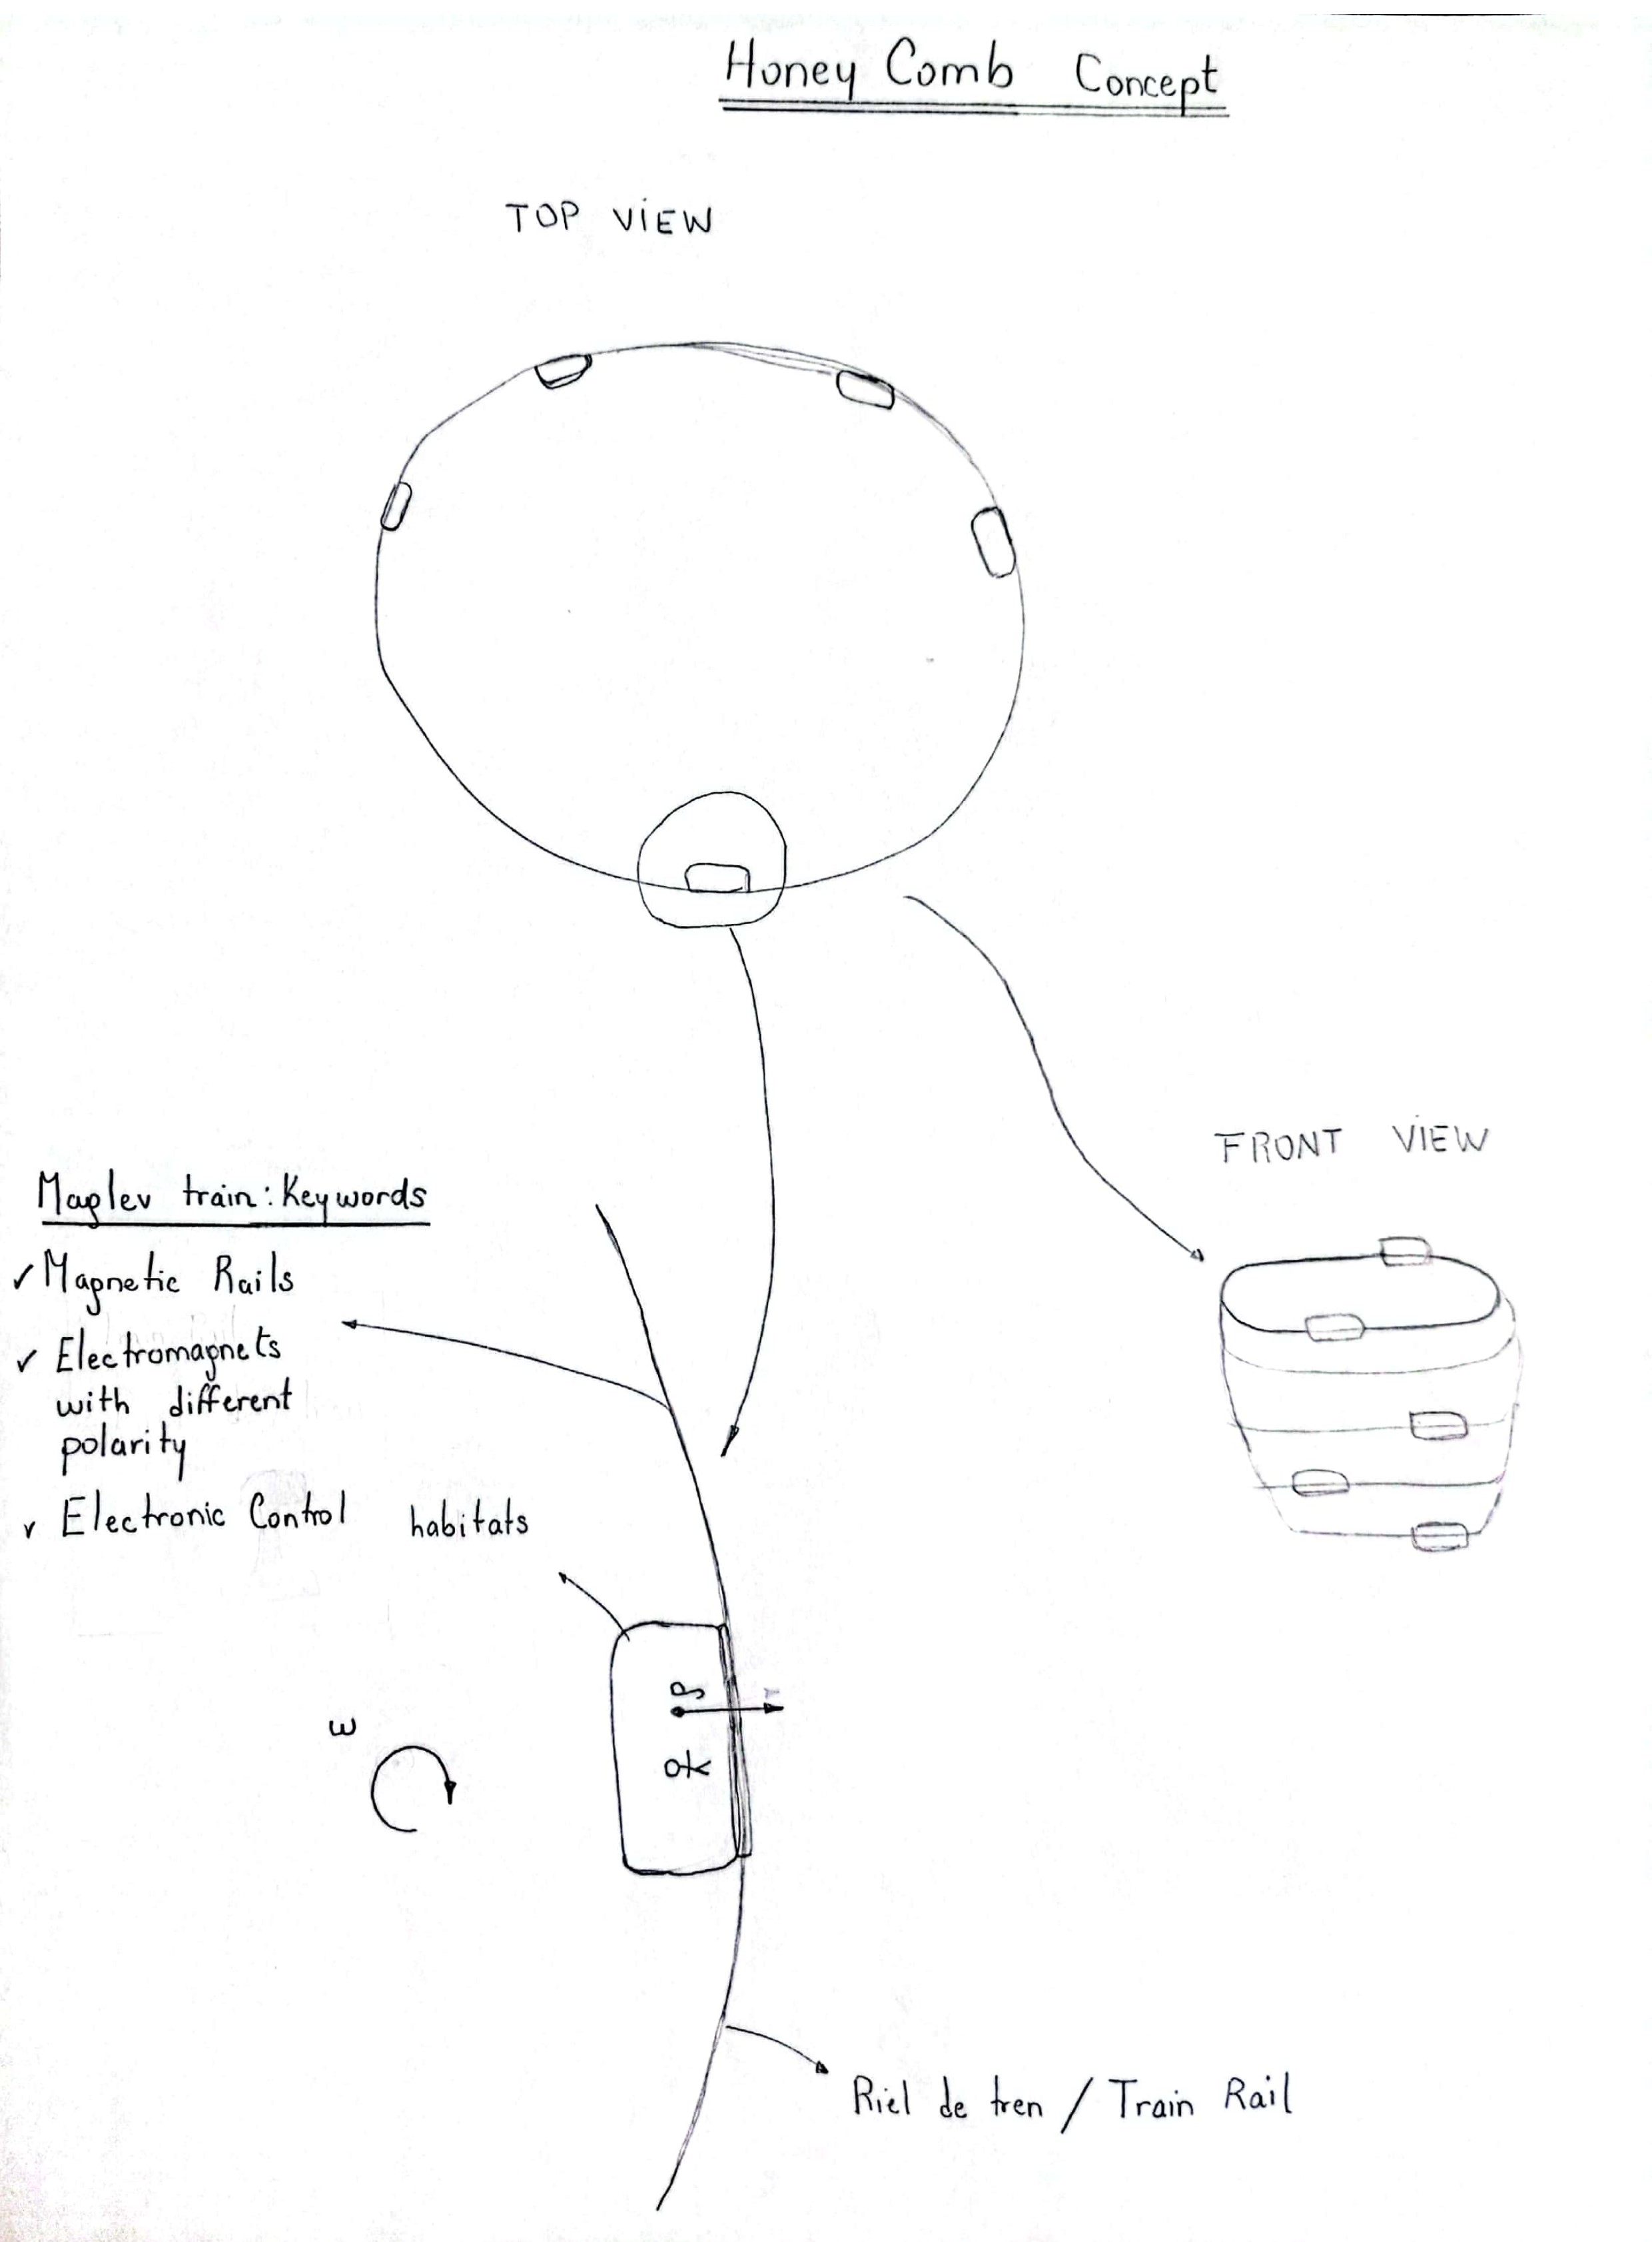 Honey Comb Concept
TOP VIEW
FRONT VIEW
Maglev train: Keywords
✓ Magnetic Rails
✓ Electromagnets
with different
polarity
✓ Electronic Control
habitats
ω
Riel de tren / Train Rail